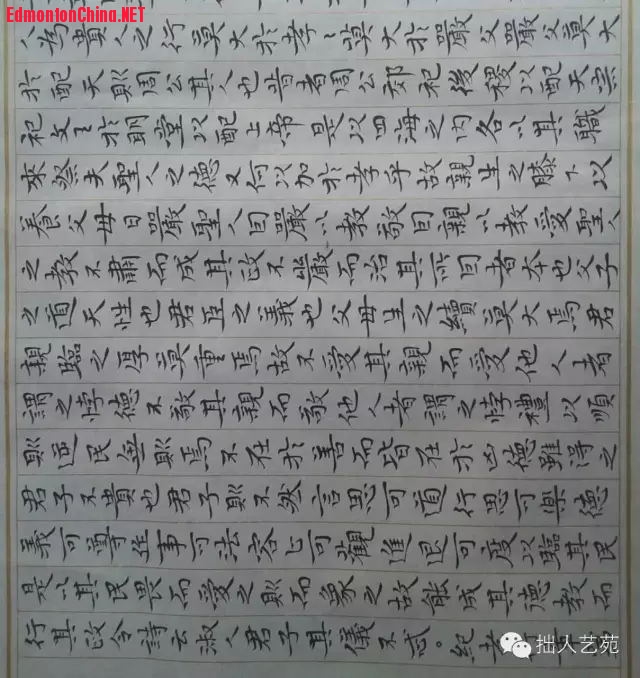 EdmontonChina.NET
人為貴人之行莫大於孝〻莫大於嚴父嚴父莫大
於配天則周公其人也昔者周公郊祀後稷以配天宗
祀文王於明堂以配上帝是以四海之內各以其職
來祭夫聖人之德又何以加於孝乎故親生之膝下以
養父母日嚴聖人因嚴以教敬因親以教愛聖人
之教不肅而成其政不嚴而治其所因者本也父子
之道天性也君臣之義也父母生之續莫大焉君
親臨之厚莫重焉故不愛其親而愛他人者
謂之悖德不敬其親而敬他人者謂之悖禮以順
則逆民無則焉不在於善而皆在於凶德雖得之
君子不貴也君子則不然言思可道行思可樂德
義可尊作事可法容止可觀進退可度以臨其民
是以其民畏而愛之則而象之故能成其德教而
行其政令詩云淑人君子其儀不忒。紀孝
拙人艺苑